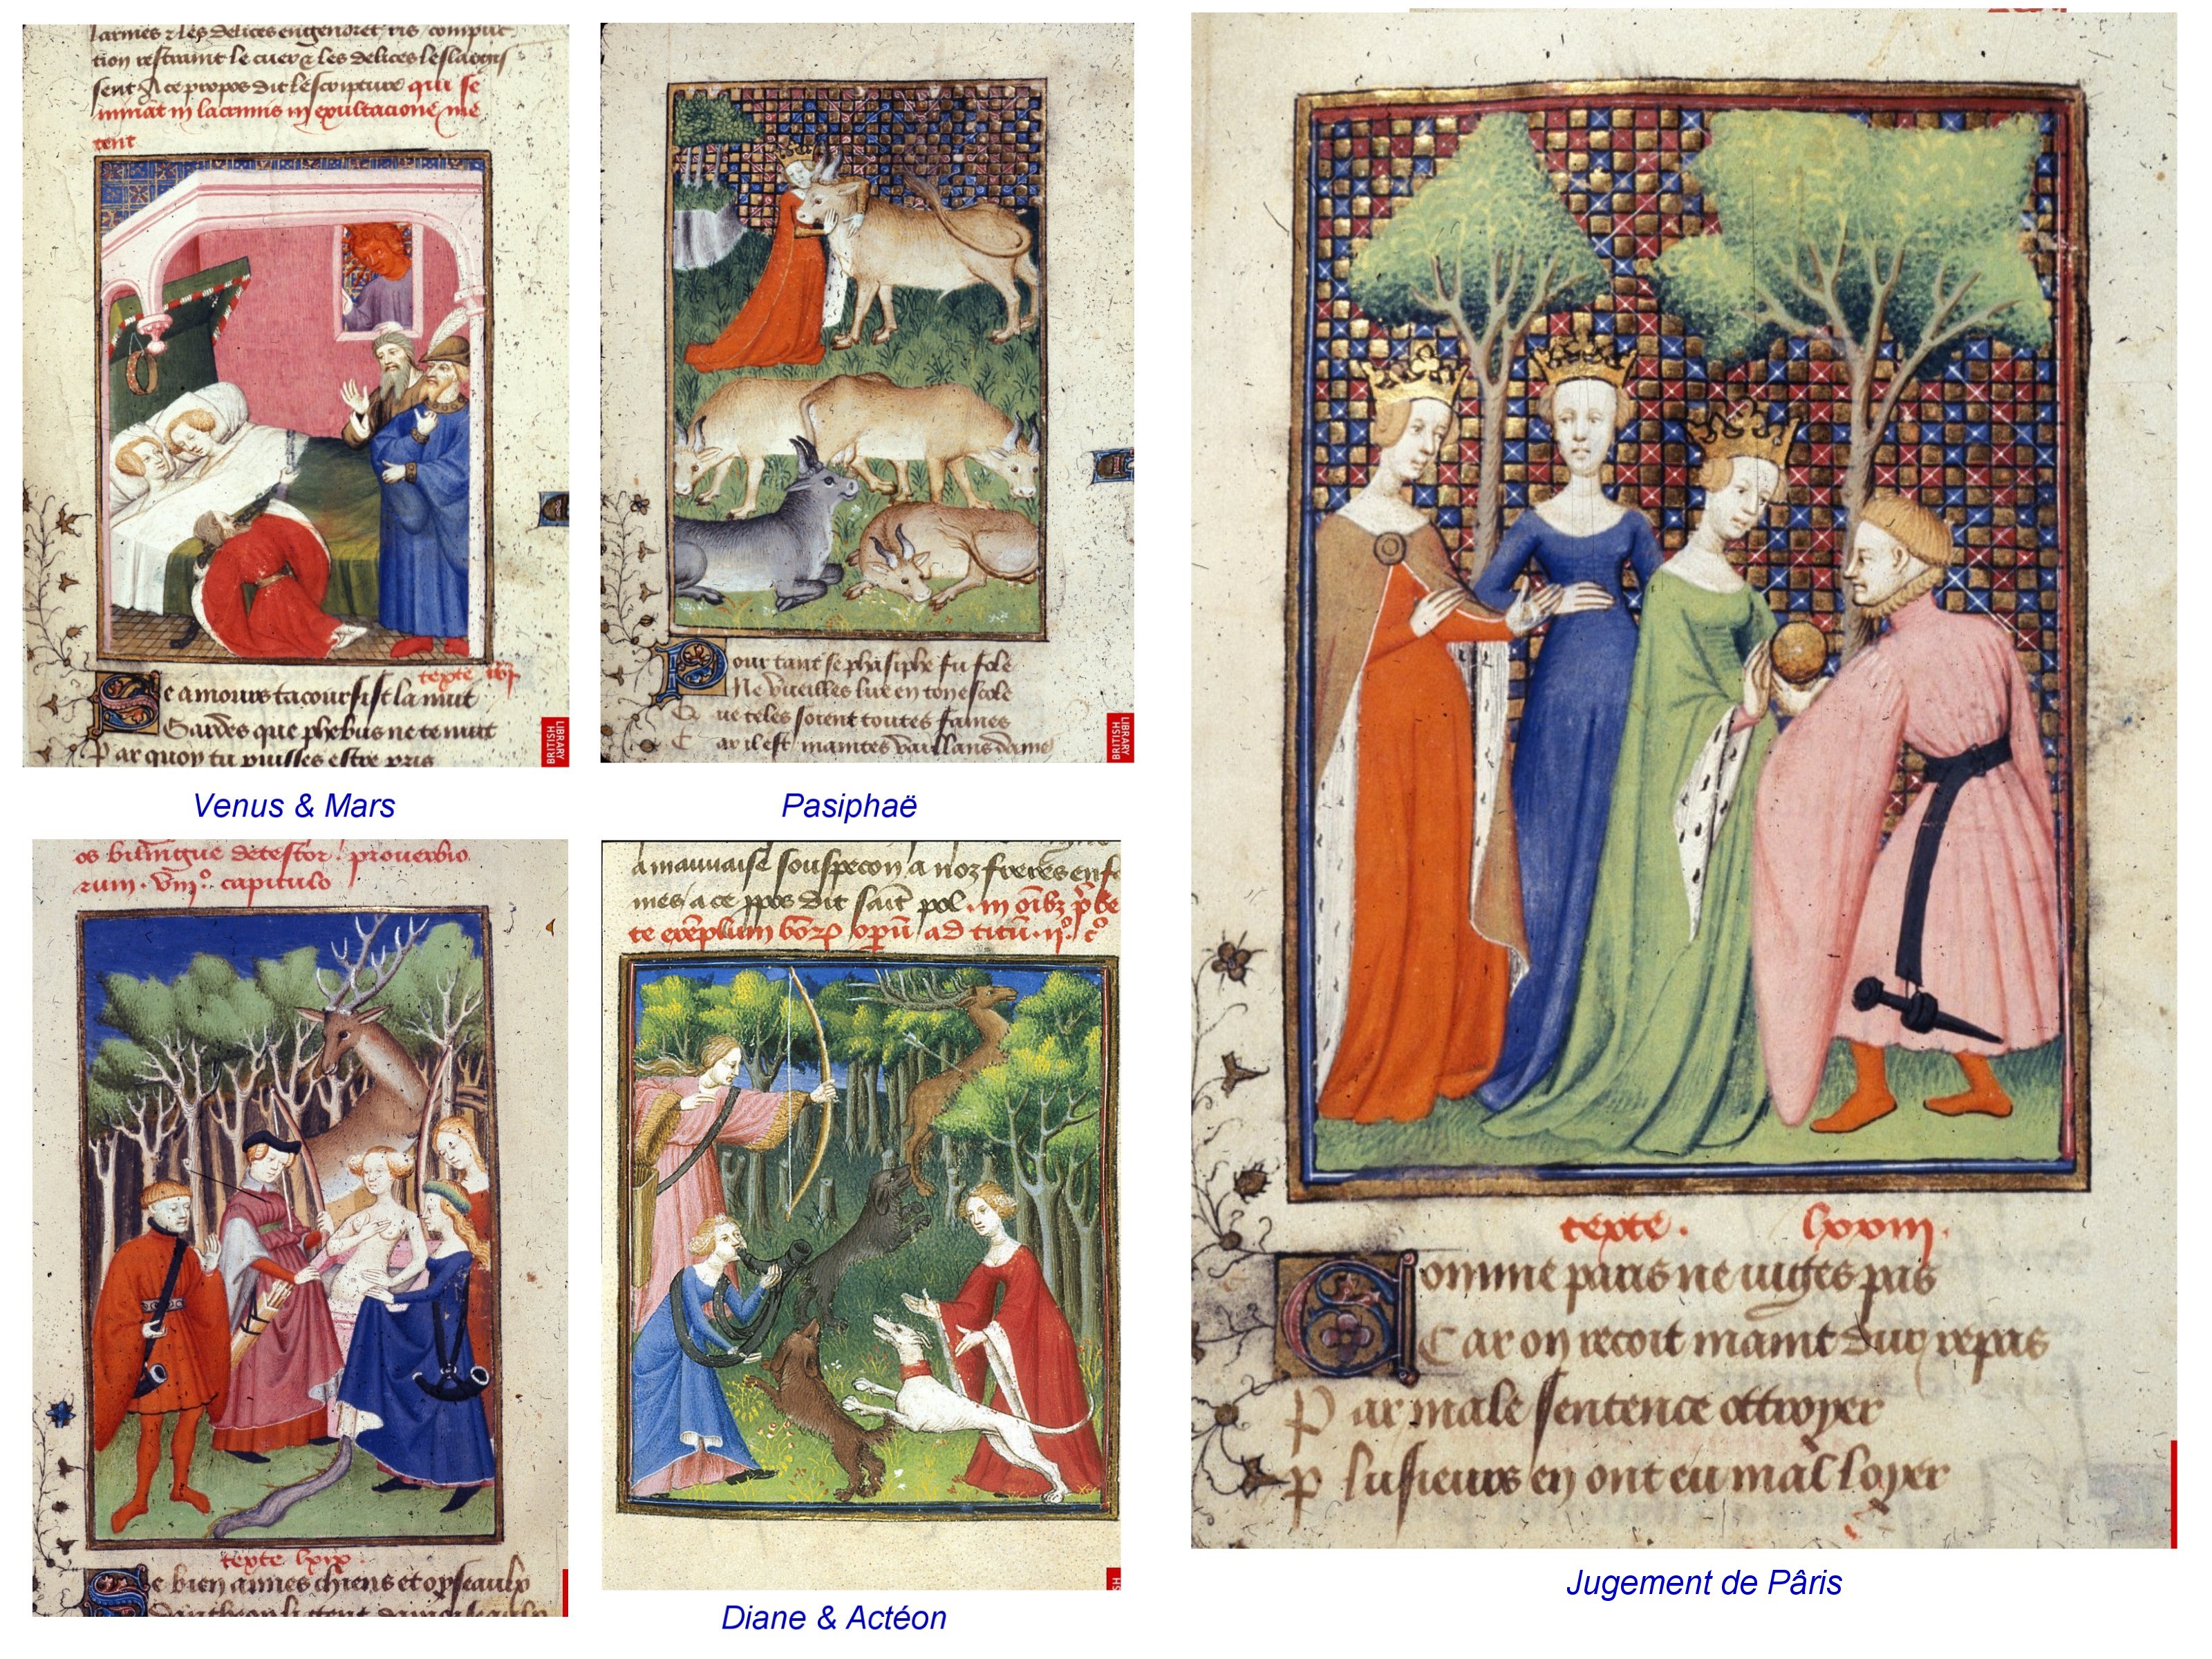 larmes & les delices engendret ris compuc
tion restraint le cuer & les delices leslargis
sent A ce propos dit lescripture qui se
minat in lacrimis in exultacione me
tent
texte
Se amours tacourfist la nuit
Gardes que phebus ne te nuit
Par quoy tu puisses estre pris
BRITISH
LIBRARY
Venus & Mars
Pour tant se phasiphe fu fole
Ne vueilles lire en ton escole
Que teles soient toutes fames
Car il est maintes vaillans dames
BRITISH
LIBRARY
Pasiphaë
os bilingue detestor. prouerbio
rum. viiiº. capitulo
texte lxix.
Se bien aimes chiens et oyseaulx
a mauuaise souspecon a noz freres enfe
mes a ce ppos dit saīt pol. in oībz p̄be
te exēplum bōrꝝ opūm ad titū. ijº. cº
Diane & Actéon
texte. lxviij.
Comme paris ne iuges pas
Car on recoit maint dur repas
Par male sentence ottroyer
Plusieurs en ont eu mal loyer
Jugement de Pâris